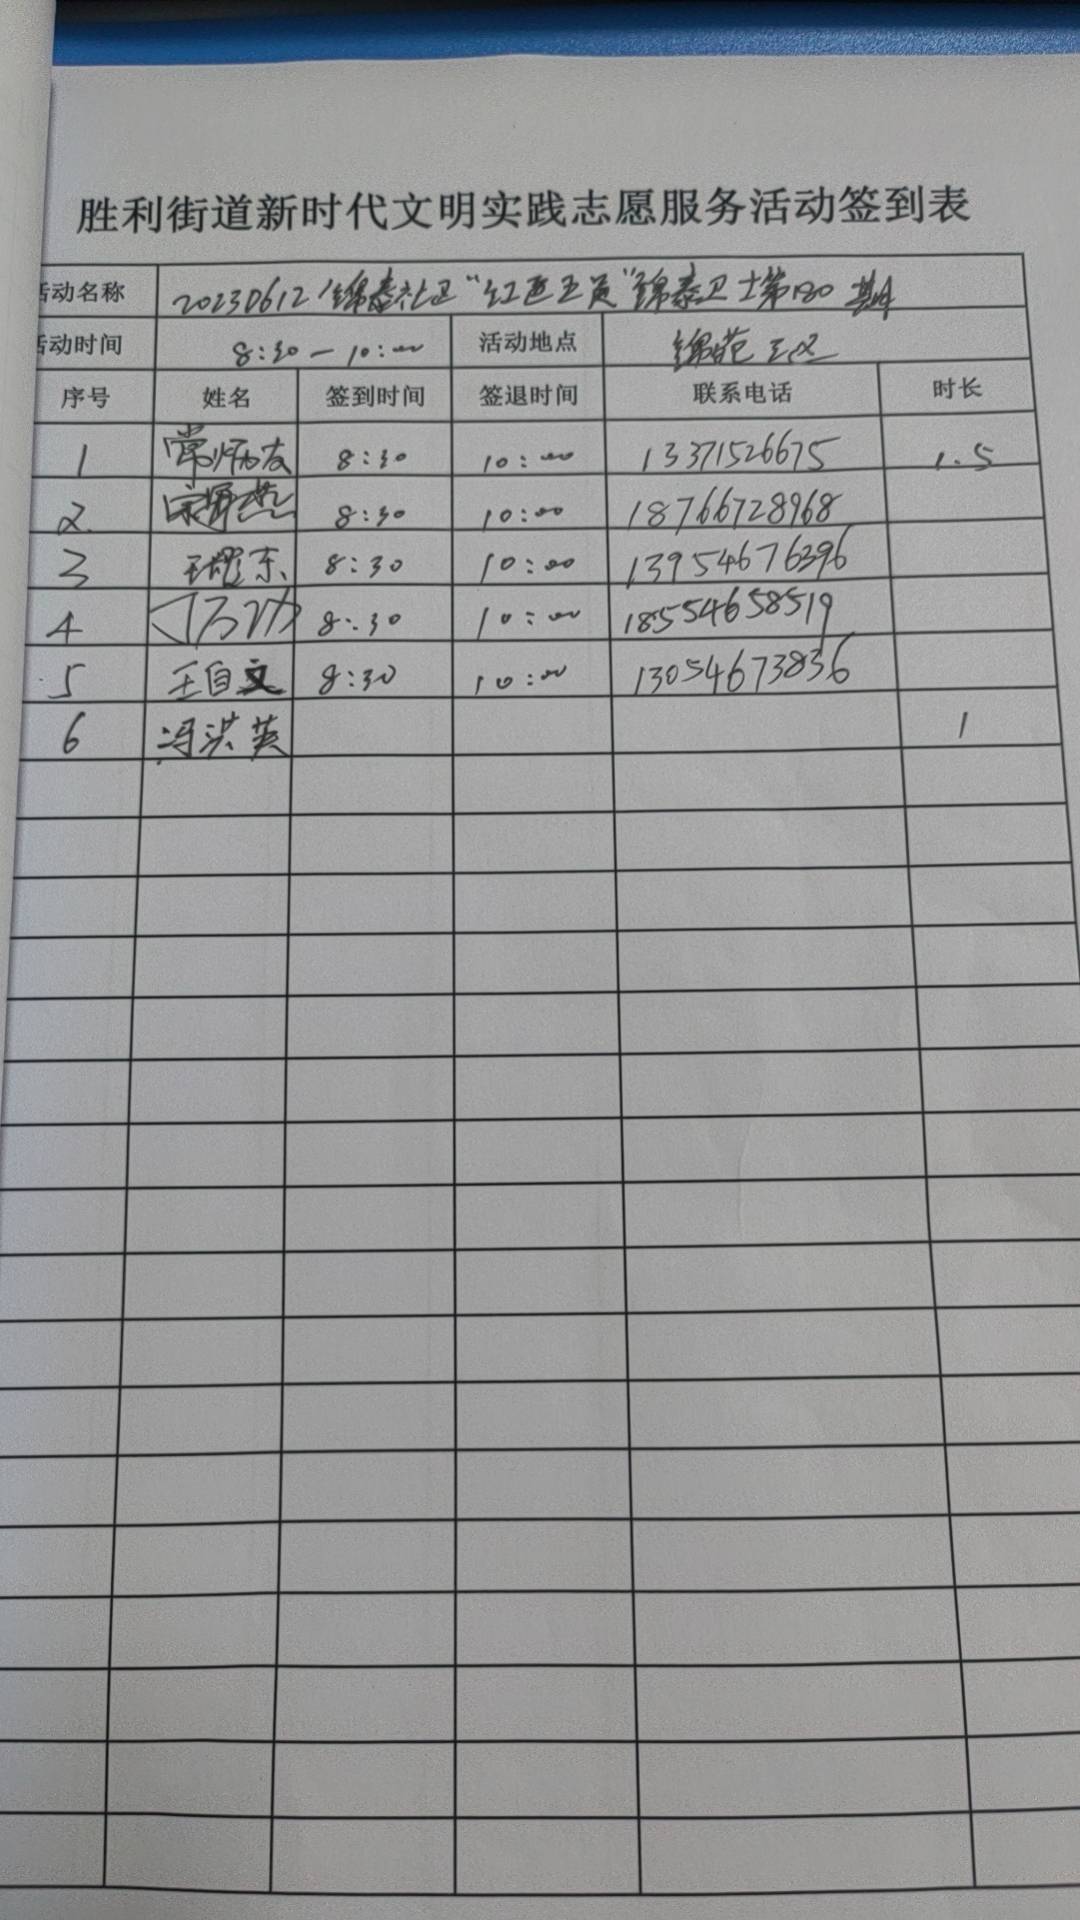 胜利街道新时代文明实践志愿服务活动签到表
活动名称 20230612锦泰社区“红区五员”锦泰卫士第180期
活动时间 8:30—10:00 活动地点 锦苑三区
序号 姓名 签到时间 签退时间 联系电话 时长
1 常炳友 8:30 10:00 13371526675 1.5
2. 8:30 10:00 18766728968
3 王耀东 8:30 10:00 13954676396
4 8:30 10:00 18554658519
5 王自文 8:30 10:00 13054673836
6 冯洪英 1